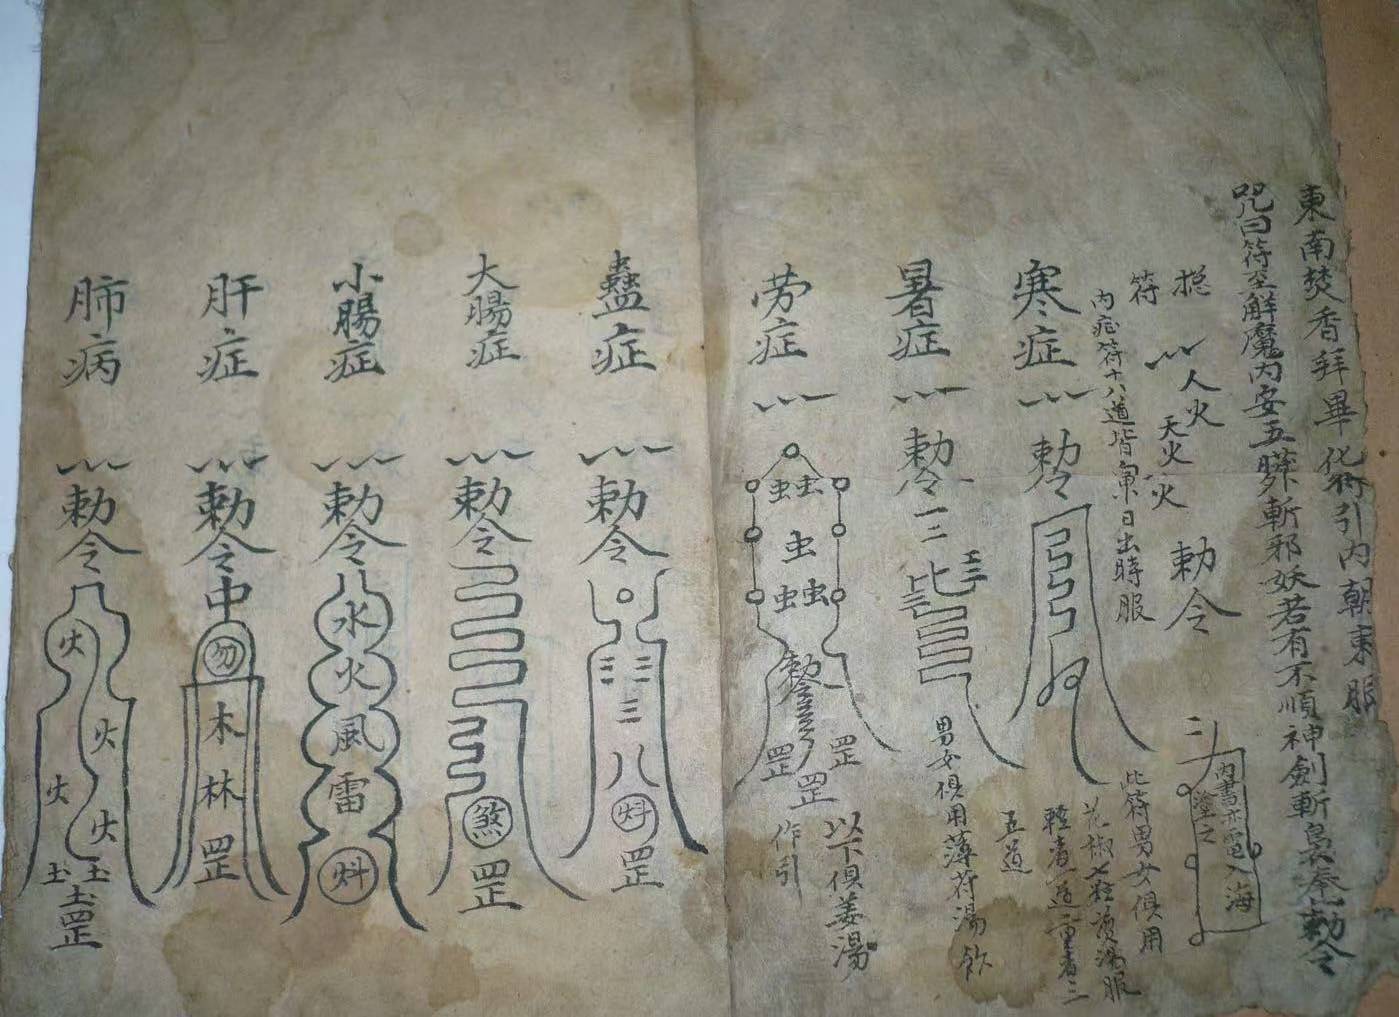 東南焚香拜畢化符引内朝東服
咒曰符至解魔内安五臟斬邪妖若有不順神劍斬裊奉勅令
捴符
人火
天火
火
勅令
内書赤電入海
塗之
内症符十八道皆向東日出時服
寒症
勅令
此符男女俱用
花椒七粒煎湯服
輕者一道重者三
五道
暑症
勅令
一二
比
三
男女俱用薄荷湯飲
劳症
虫虫
虫
虫虫
勅令
罡
罡
罡
以下俱姜湯
作引
蠱症
勅令
三
八
㶨
罡
大腸症
勅令
煞
罡
小腸症
勅令
水
火
風
雷
㶨
肝症
勅令
中
勿
木
林
罡
肺病
勅令
火
火
火
火
罡